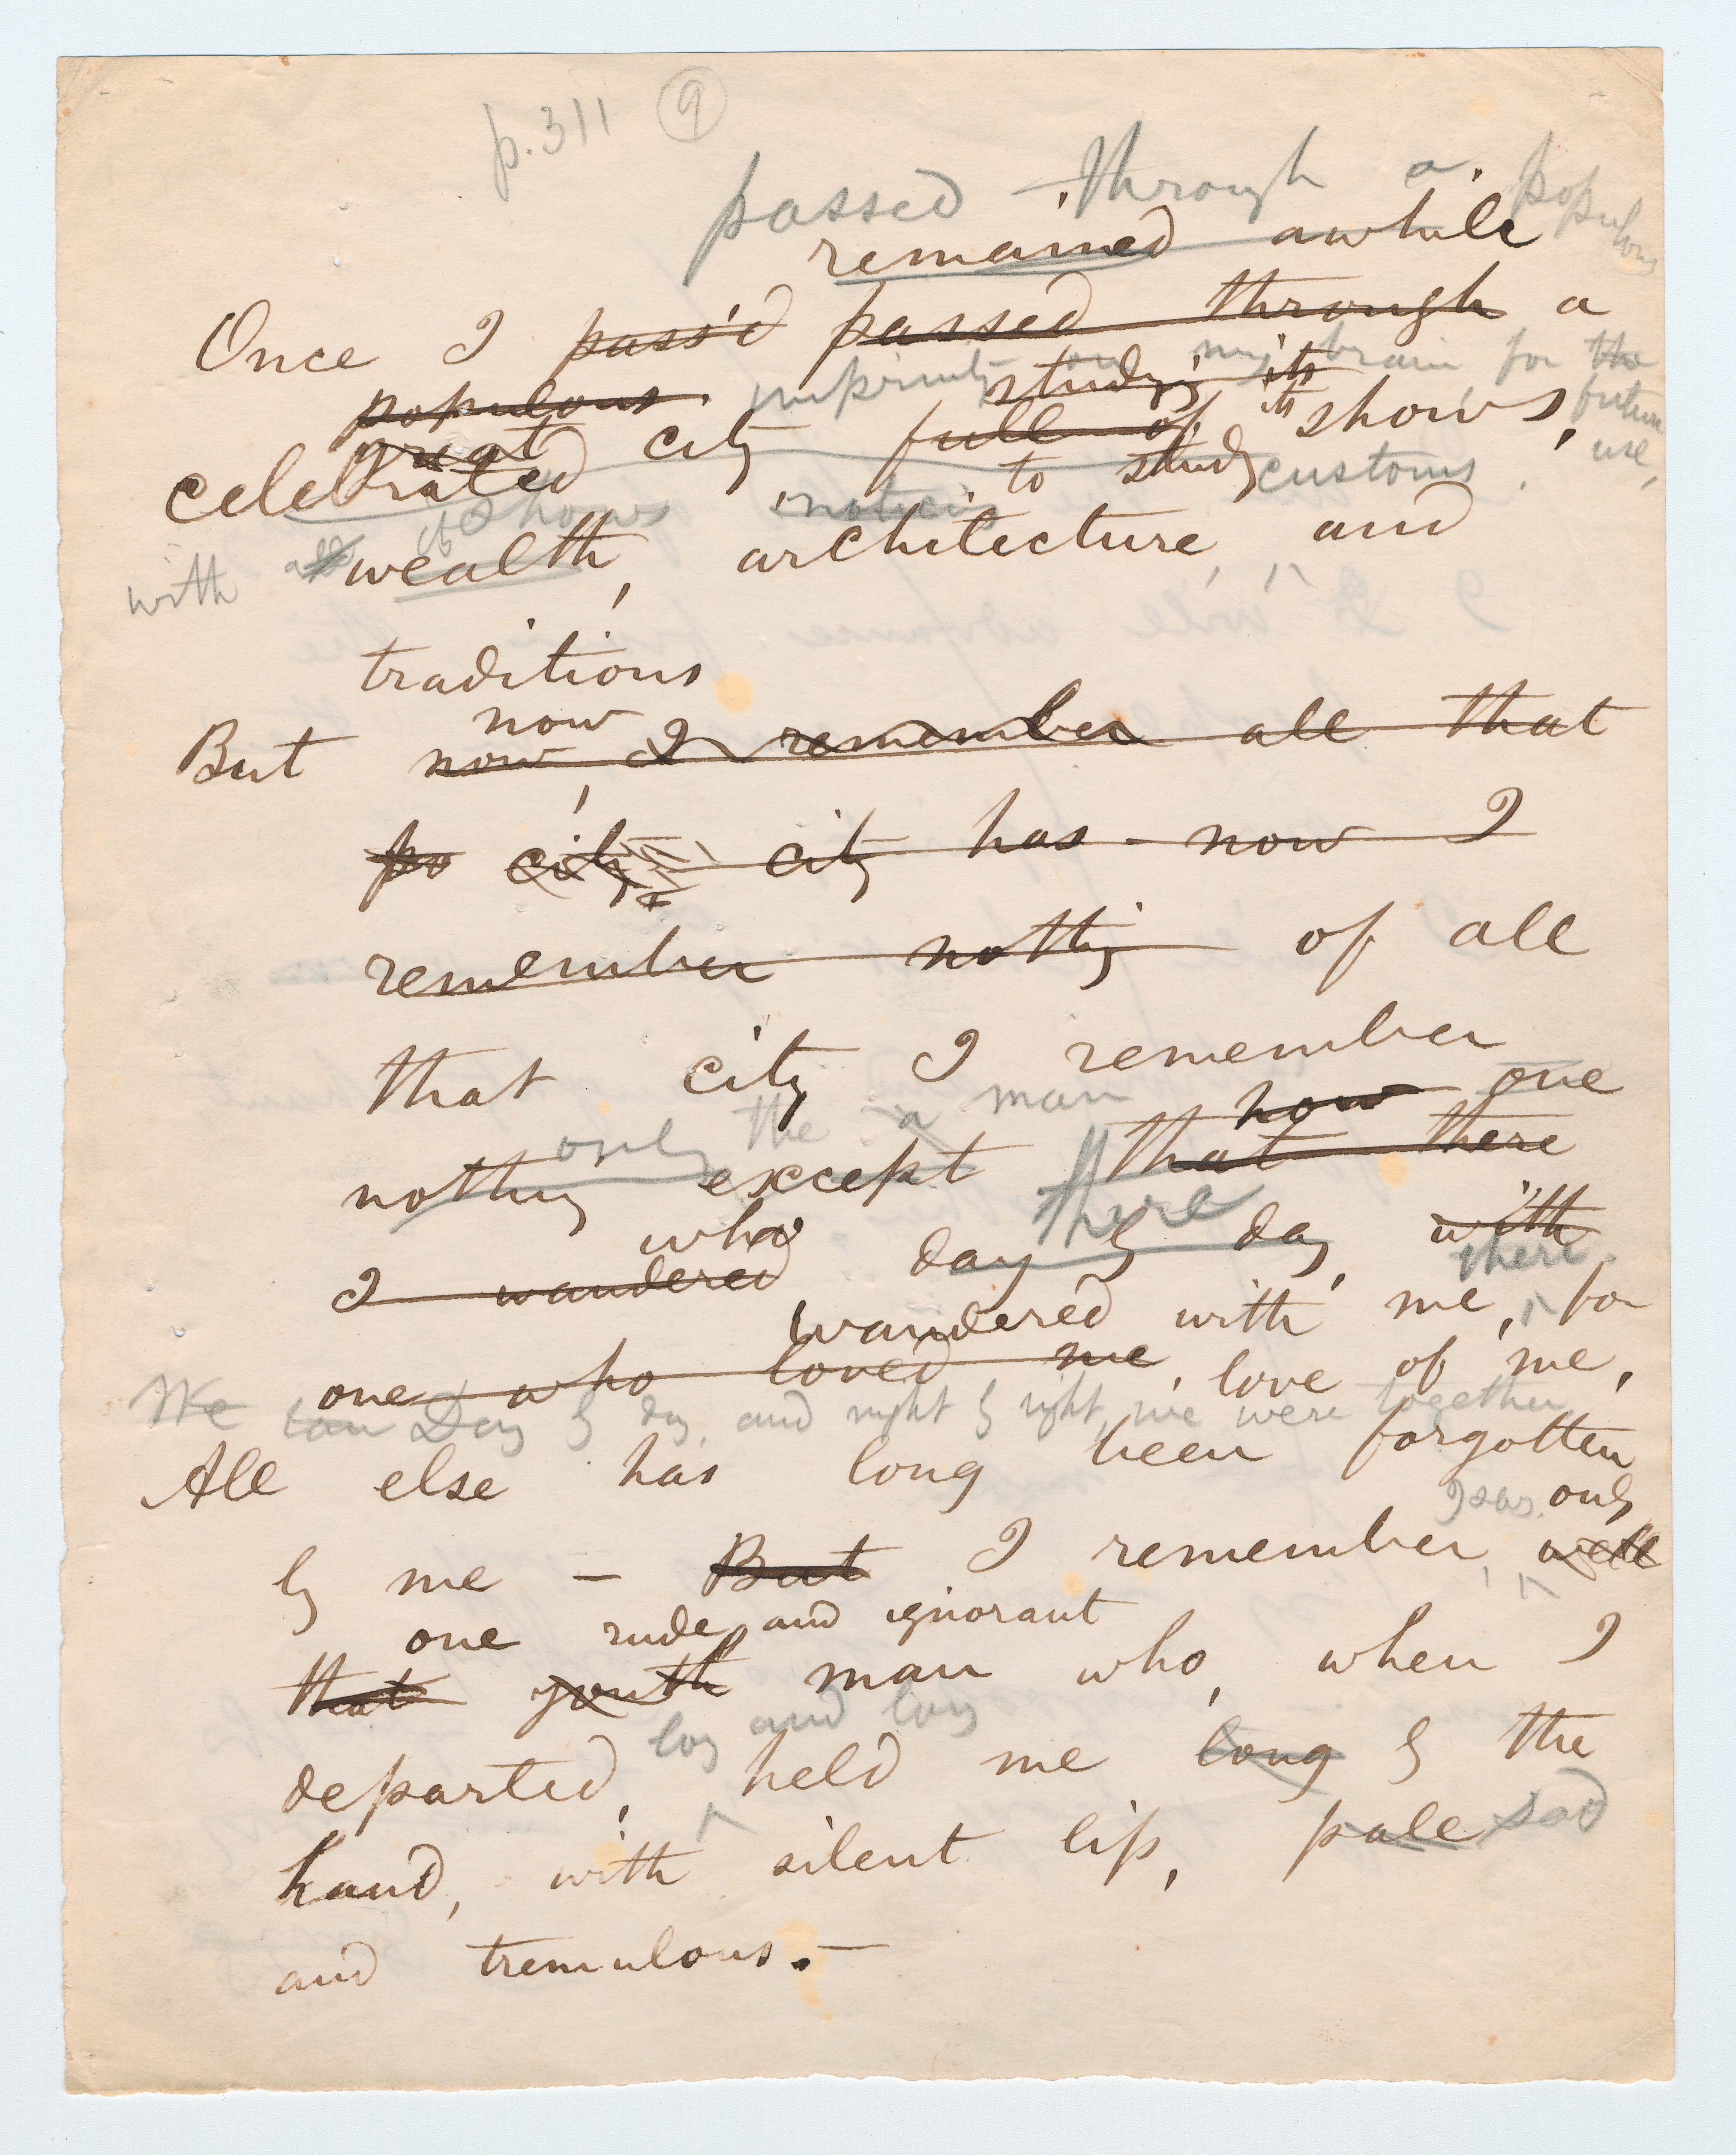 p. 311 9
passed through a populous
remained awhile
Once I pass'd passed through a
populous imprinting on my brain for the future use,
great studying its
celebrated city full of its shows,
to study customs
its shows noticing
with all wealth, architecture, and
traditions
now
But now, I remember all that
po city city has - now I
remember nothing of all
that city I remember
only the a man how one
nothing except that there
who there
I wandered day by day, with
there
wandered with me, for
one who loved me, love of me,
We Day by day, and night by night, we were together,
All else has long been forgotten
I say only
by me — But I remember, well
one rude and ignorant
that youth man who, when I
long and long
departed, held me long by the
hand, with silent lip, pale sad
and tremulous.—